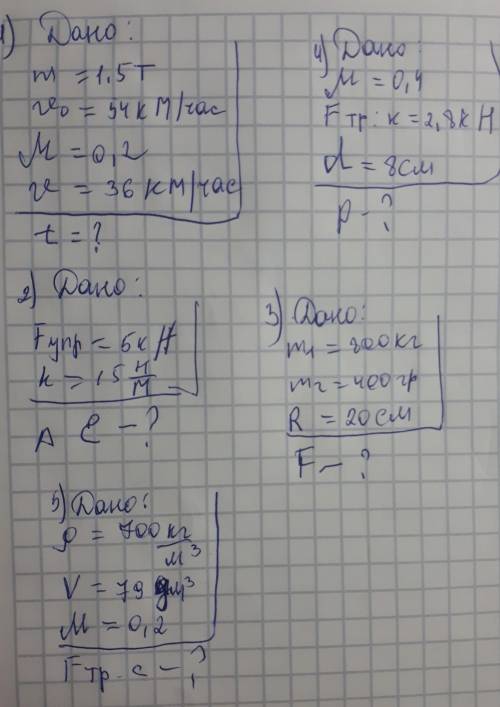 1) Дано:
m = 1,5 Т
v₀ = 54 км/час
М = 0,2
v = 36 км/час
t = ?
4) Дано:
М = 0,4
Fтр.к = 2,8 кН
d = 8 см
P - ?
2) Дано:
Fупр = 6 кН
k = 15 Н/м
Δ ℓ - ?
3) Дано:
m₁ = 300 кг
m₂ = 400 гр
R = 20 см
F - ?
5) Дано:
ρ = 700 кг/м³
V = 79 дм³
М = 0,2
Fтр.с - ?